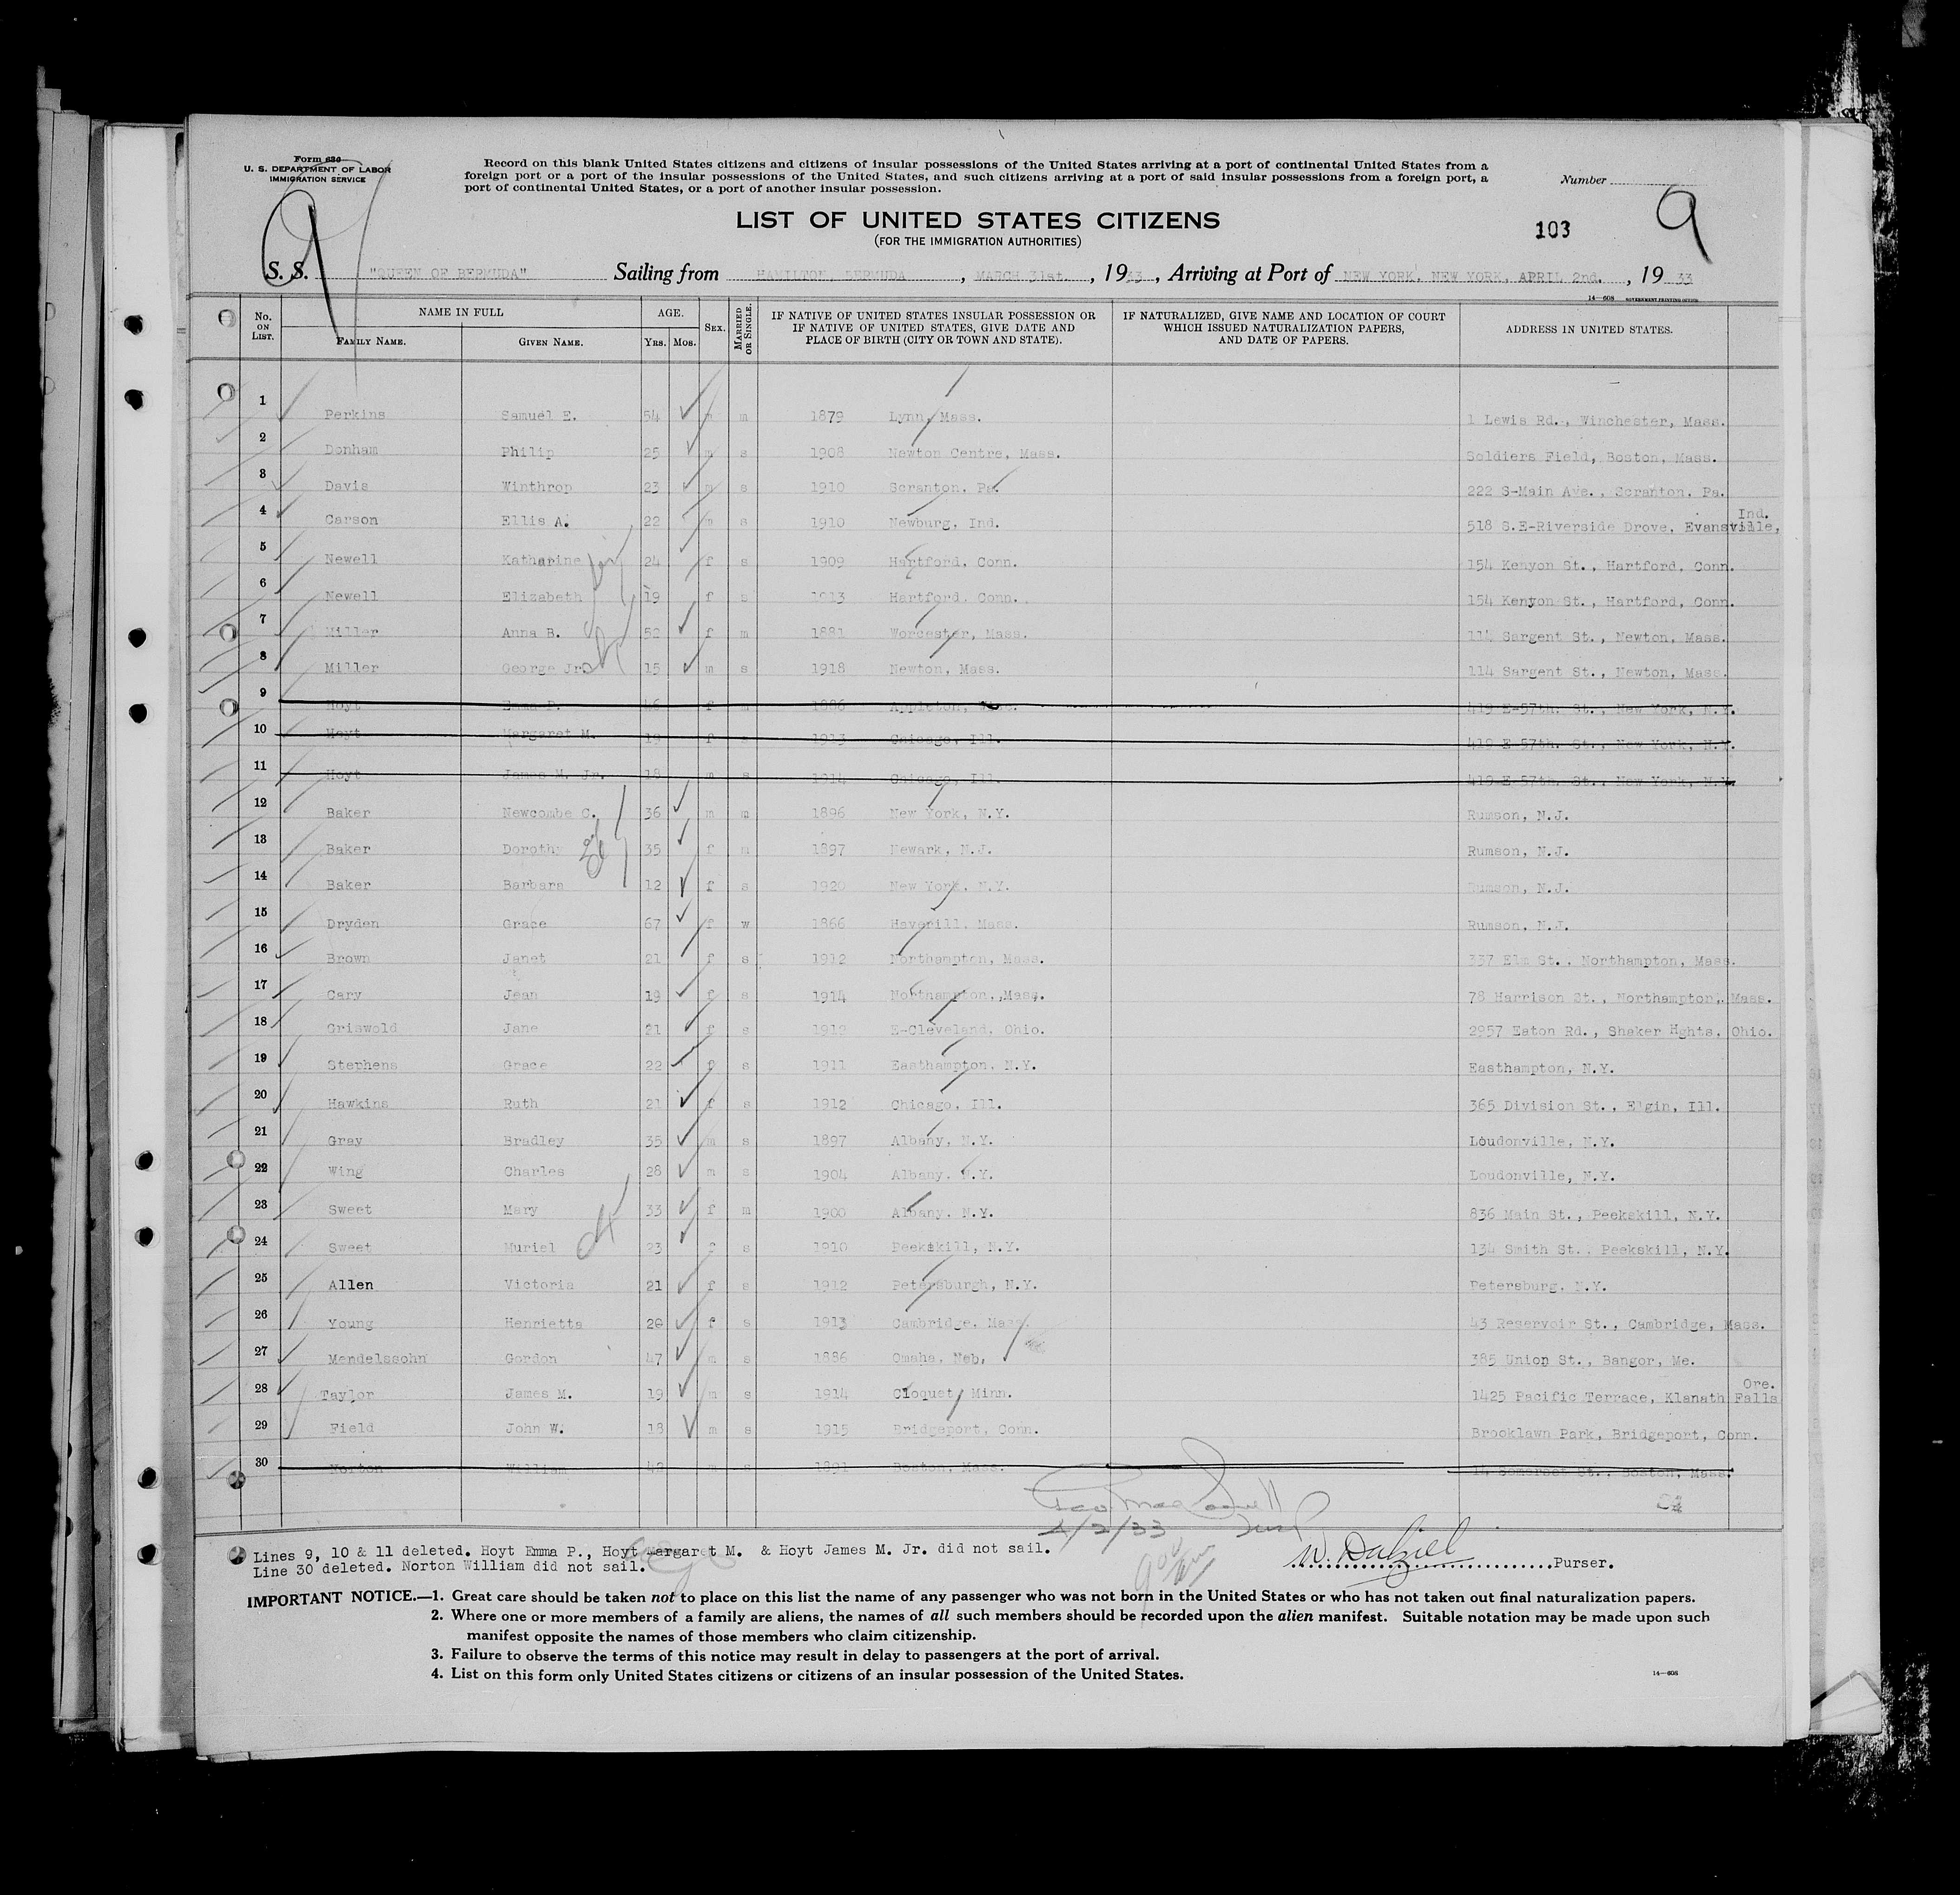 Form 630
U. S. DEPARTMENT OF LABOR
IMMIGRATION SERVICE
Record on this blank United States citizens and citizens of insular possessions of the United States arriving at a port of continental United States from a
foreign port or a port of the insular possessions of the United States, and such citizens arriving at a port of said insular possessions from a foreign port, a
port of continental United States, or a port of another insular possession.
Number
9
9
LIST OF UNITED STATES CITIZENS
(FOR THE IMMIGRATION AUTHORITIES)
103
S. S. "QUEEN OF BERMUDA" Sailing from HAMILTON, BERMUDA, MARCH 31st., 1933, Arriving at Port of NEW YORK, NEW YORK, APRIL 2nd., 1933
14—608 GOVERNMENT PRINTING OFFICE
No. ON LIST. NAME IN FULL FAMILY NAME. GIVEN NAME. AGE. YRS. MOS. SEX. MARRIED OR SINGLE. IF NATIVE OF UNITED STATES INSULAR POSSESSION OR IF NATIVE OF UNITED STATES, GIVE DATE AND PLACE OF BIRTH (CITY OR TOWN AND STATE). IF NATURALIZED, GIVE NAME AND LOCATION OF COURT WHICH ISSUED NATURALIZATION PAPERS, AND DATE OF PAPERS. ADDRESS IN UNITED STATES.
1 Perkins Samuel E. 54 m m 1879 Lynn, Mass. 1 Lewis Rd., Winchester, Mass.
2 Donham Philip 25 m s 1908 Newton Centre, Mass. Soldiers Field, Boston, Mass.
3 Davis Winthrop 23 m s 1910 Scranton, Pa. 222 S-Main Ave., Scranton, Pa.
4 Carson Ellis A. 22 m s 1910 Newburg, Ind. 518 S.E-Riverside Drove, Evansville, Ind.
5 Newell Katharine 24 f s 1909 Hartford, Conn. 154 Kenyon St., Hartford, Conn.
6 Newell Elizabeth 19 f s 1913 Hartford, Conn. 154 Kenyon St., Hartford, Conn.
7 Miller Anna B. 52 f m 1881 Worcester, Mass. 114 Sargent St., Newton, Mass.
8 Miller George Jr. 15 m s 1918 Newton, Mass. 114 Sargent St., Newton, Mass.
9 Hoyt Emma P. 46 f m 1886 Appleton, Wis. 419 E-57th. St., New York, N.Y.
10 Hoyt Margaret M. 19 f s 1913 Chicago, Ill. 419 E-57th. St., New York, N.Y.
11 Hoyt James M. Jr. 18 m s 1914 Chicago, Ill. 419 E-57th. St., New York, N.Y.
12 Baker Newcombe C. 36 m m 1896 New York, N.Y. Rumson, N.J.
13 Baker Dorothy 35 f m 1897 Newark, N.J. Rumson, N.J.
14 Baker Barbara 12 f s 1920 New York, N.Y. Rumson, N.J.
15 Dryden Grace 67 f w 1866 Haverill, Mass. Rumson, N.J.
16 Brown Janet 21 f s 1912 Northampton, Mass. 337 Elm St., Northampton, Mass.
17 Cary Jean 19 f s 1914 Northampton, Mass. 78 Harrison St., Northampton, Mass.
18 Griswold Jane 21 f s 1912 E-Cleveland, Ohio. 2957 Eaton Rd., Shaker Hghts, Ohio.
19 Stephens Grace 22 f s 1911 Easthampton, N.Y. Easthampton, N.Y.
20 Hawkins Ruth 21 f s 1912 Chicago, Ill. 365 Division St., Elgin, Ill.
21 Gray Bradley 35 m s 1897 Albany, N.Y. Loudonville, N.Y.
22 Wing Charles 28 m s 1904 Albany, N.Y. Loudonville, N.Y.
23 Sweet Mary 33 f m 1900 Albany, N.Y. 836 Main St., Peekskill, N.Y.
24 Sweet Muriel 23 f s 1910 Peekskill, N.Y. 134 Smith St., Peekskill, N.Y.
25 Allen Victoria 21 f s 1912 Petersburgh, N.Y. Petersburg, N.Y.
26 Young Henrietta 20 f s 1913 Cambridge, Mass. 43 Reservoir St., Cambridge, Mass.
27 Mendelssohn Gordon 47 m s 1886 Omaha, Neb, 385 Union St., Bangor, Me.
28 Taylor James M. 19 m s 1914 Cloquet, Minn. 1425 Pacific Terrace, Klanath Falls Ore.
29 Field John W. 18 m s 1915 Bridgeport, Conn. Brooklawn Park, Bridgeport, Conn.
30 Norton William 42 m s 1891 Boston, Mass. 14 Somerset St., Boston, Mass.
4/2/33
Lines 9, 10 & 11 deleted. Hoyt Emma P., Hoyt Margaret M. & Hoyt James M. Jr. did not sail.
Line 30 deleted. Norton William did not sail.
W. Dalziel Purser.
IMPORTANT NOTICE.—1. Great care should be taken not to place on this list the name of any passenger who was not born in the United States or who has not taken out final naturalization papers.
2. Where one or more members of a family are aliens, the names of all such members should be recorded upon the alien manifest. Suitable notation may be made upon such
manifest opposite the names of those members who claim citizenship.
3. Failure to observe the terms of this notice may result in delay to passengers at the port of arrival.
4. List on this form only United States citizens or citizens of an insular possession of the United States.
14—608